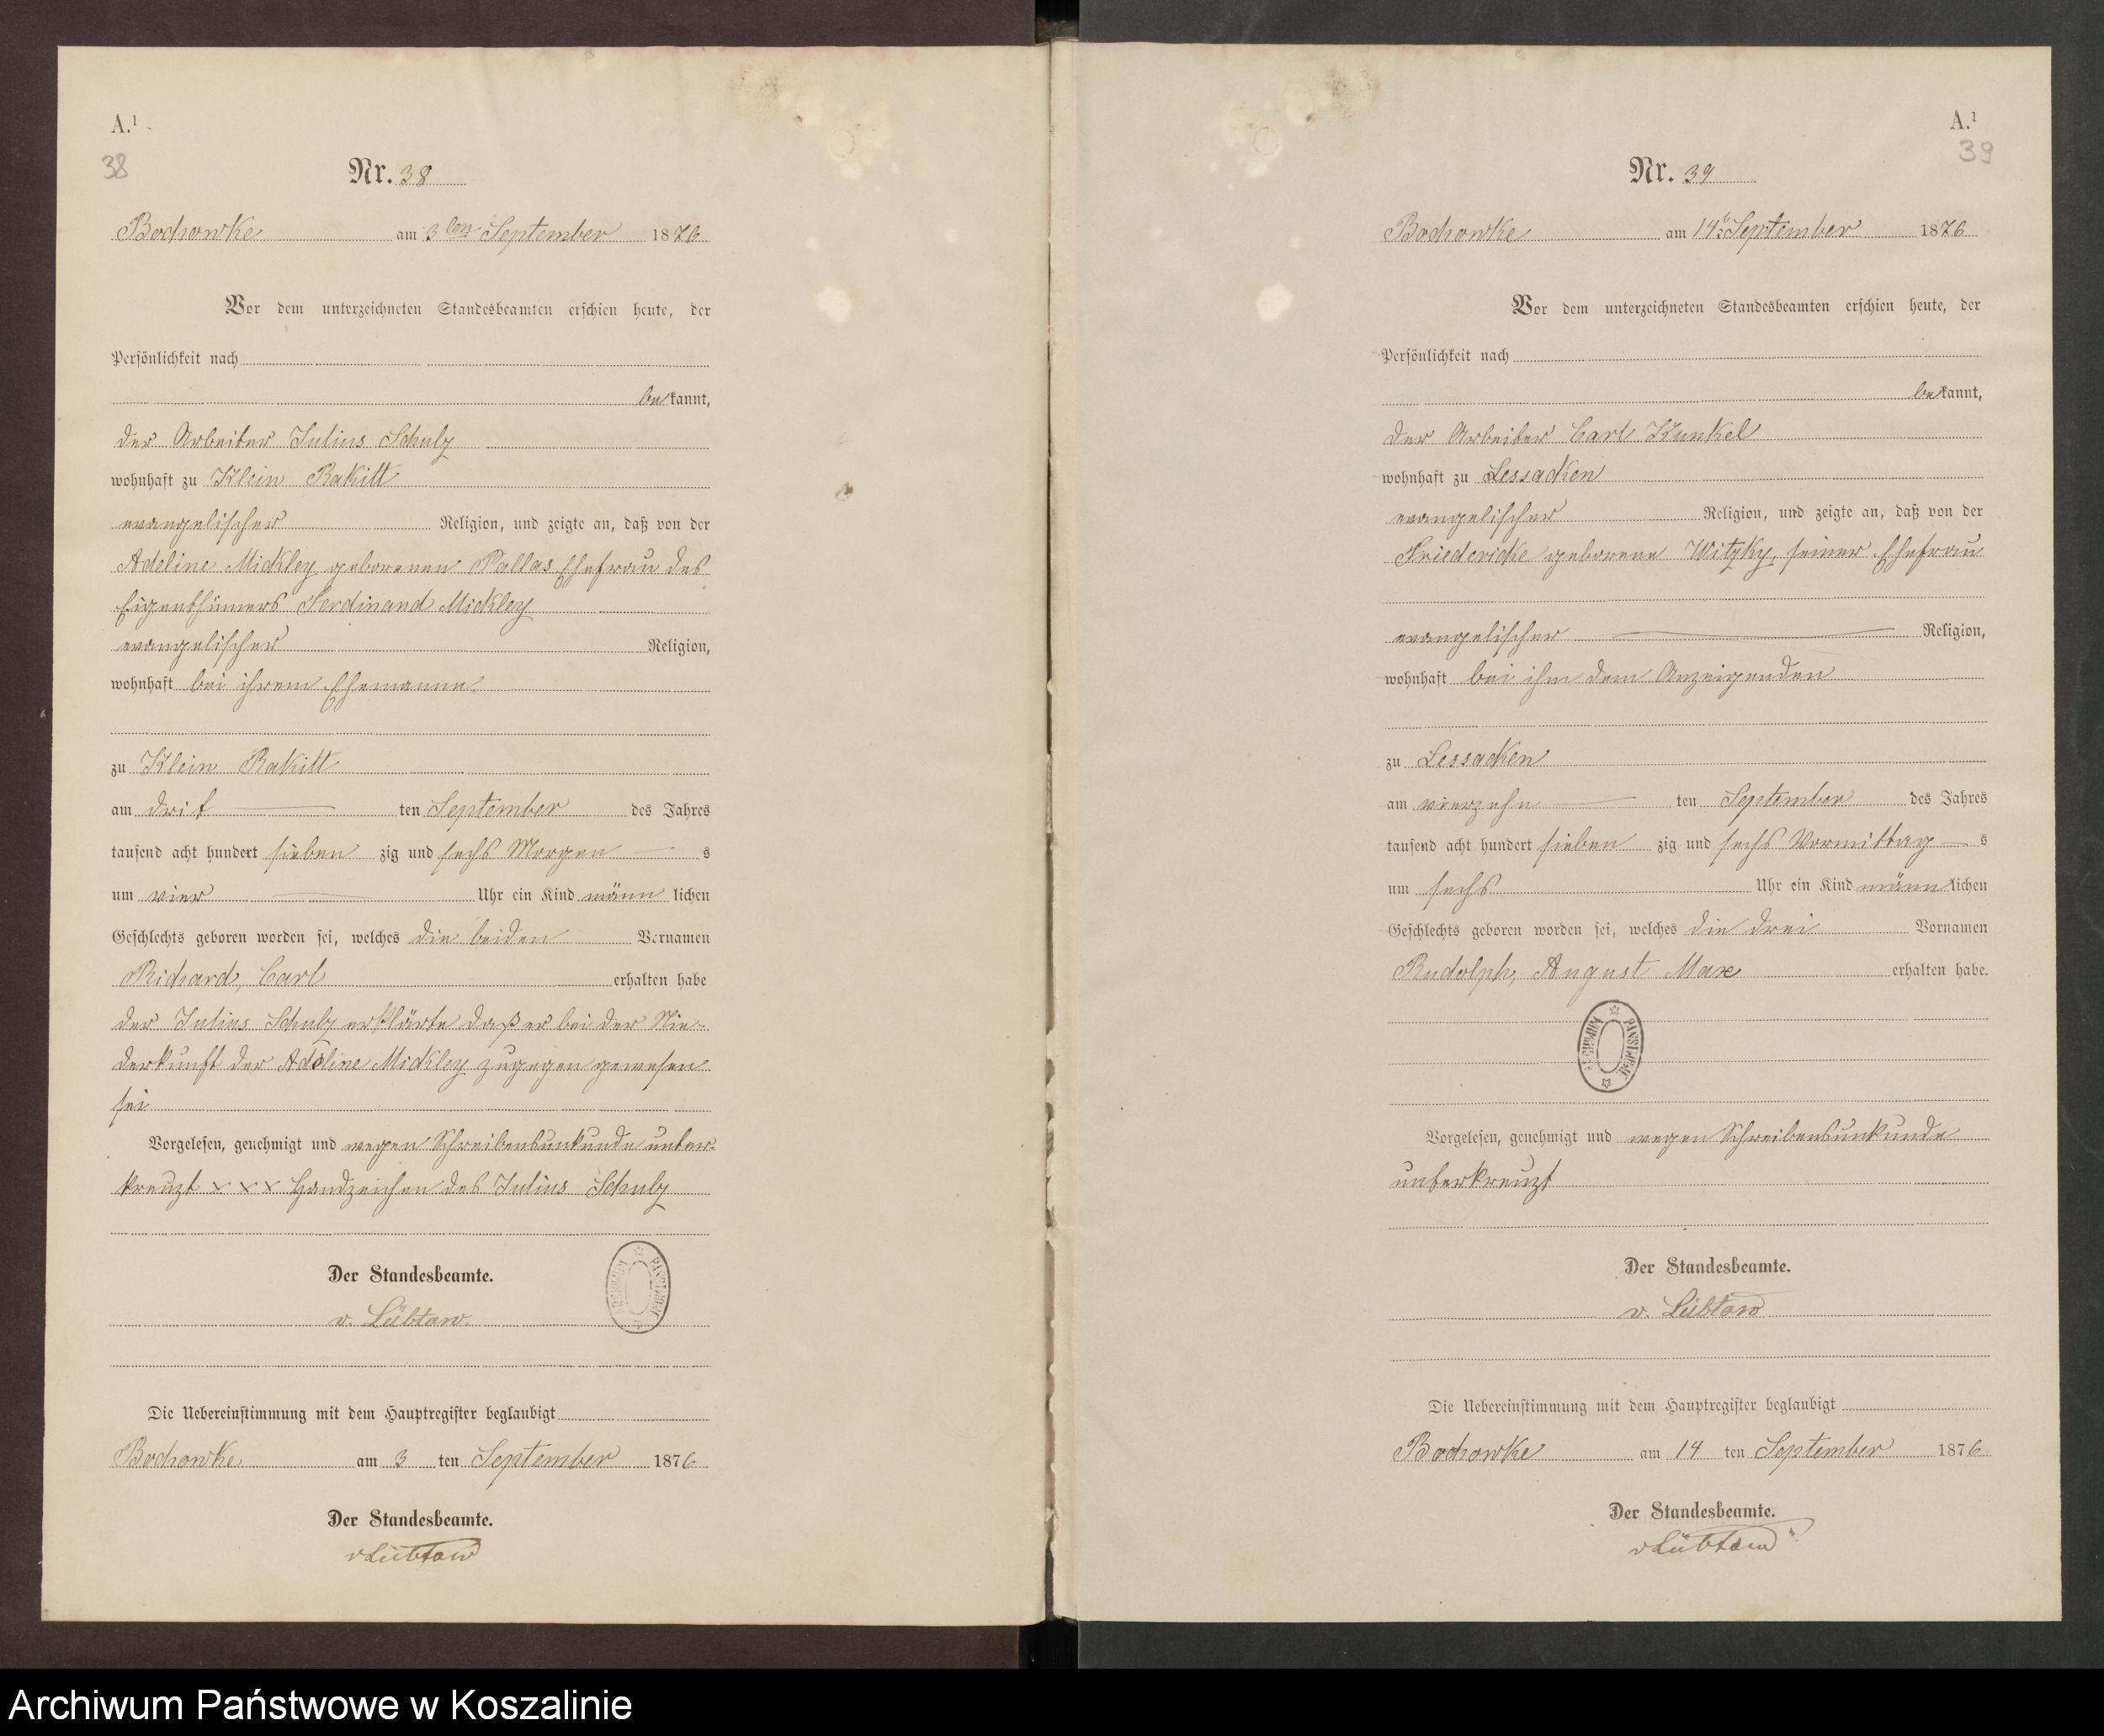 A.¹
38
Nr. 38
Bochowke am 3ten September 1876
Vor dem unterzeichneten Standesbeamten erschien heute, der
Persönlichkeit nach
bekannt,
der Arbeiter Julius Schulz
wohnhaft zu Klein Rakitt
evangelischer Religion, und zeigte an, daß von der
Adeline Mickley geborenen Pallas Ehefrau des
Eigenthümers Ferdinand Mickley
evangelischer Religion,
wohnhaft bei ihrem Ehemanne
zu Klein Rakitt
am drit ten September des Jahres
tausend acht hundert sieben zig und sechs Morgen s
um vier Uhr ein Kind männ lichen
Geschlechts geboren worden sei, welches die beiden Vornamen
Richard, Carl erhalten habe
der Julius Schulz erklärte daß er bei der Nie-
derkunft der Adeline Mickley zugegen gewesen
sei
Vorgelesen, genehmigt und wegen Schreibensunkunde unter-
kreuzt x x x Handzeichen des Julius Schulz
Der Standesbeamte.
v. Lübtow.
ARCHIWUM PAŃSTWOWE
Die Uebereinstimmung mit dem Hauptregister beglaubigt
Bochowke am 3 ten September 1876
Der Standesbeamte.
vLübtow
A.¹
39
Nr. 39
Bochowke am 14t September 1876
Vor dem unterzeichneten Standesbeamten erschien heute, der
Persönlichkeit nach
bekannt,
der Arbeiter Carl Kunkel
wohnhaft zu Lessacken
evangelischer Religion, und zeigte an, daß von der
Friedericke geborene Witzky, seiner Ehefrau
evangelischer Religion,
wohnhaft bei ihm dem Anzeigenden
zu Lessacken
am vierzehn ten September des Jahres
tausend acht hundert sieben zig und sechs Vormittag s
um sechs Uhr ein Kind männ lichen
Geschlechts geboren worden sei, welches die drei Vornamen
Rudolph, August Max erhalten habe.
ARCHIWUM PAŃSTWOWE
Vorgelesen, genehmigt und wegen Schreibensunkunde
unterkreuzt
Der Standesbeamte.
v. Lübtow
Die Uebereinstimmung mit dem Hauptregister beglaubigt
Bochowke am 14 ten September 1876
Der Standesbeamte.
vLübtow
Archiwum Państwowe w Koszalinie